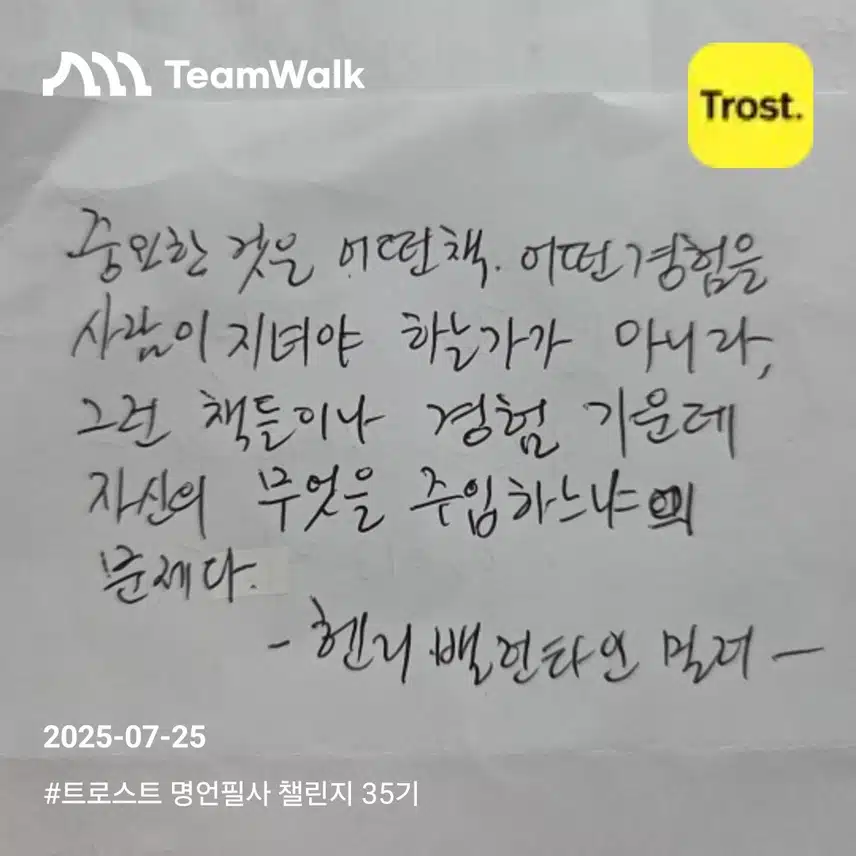 TeamWalk
Trost.
중요한 것은 어떤 책. 어떤 경험을
사람이 지녀야 하는가가 아니라,
그런 책들이나 경험 가운데
자신의 무엇을 주입하느냐의
문제다.
- 헨리 밸런타인 밀러 -
2025-07-25
#트로스트 명언필사 챌린지 35기